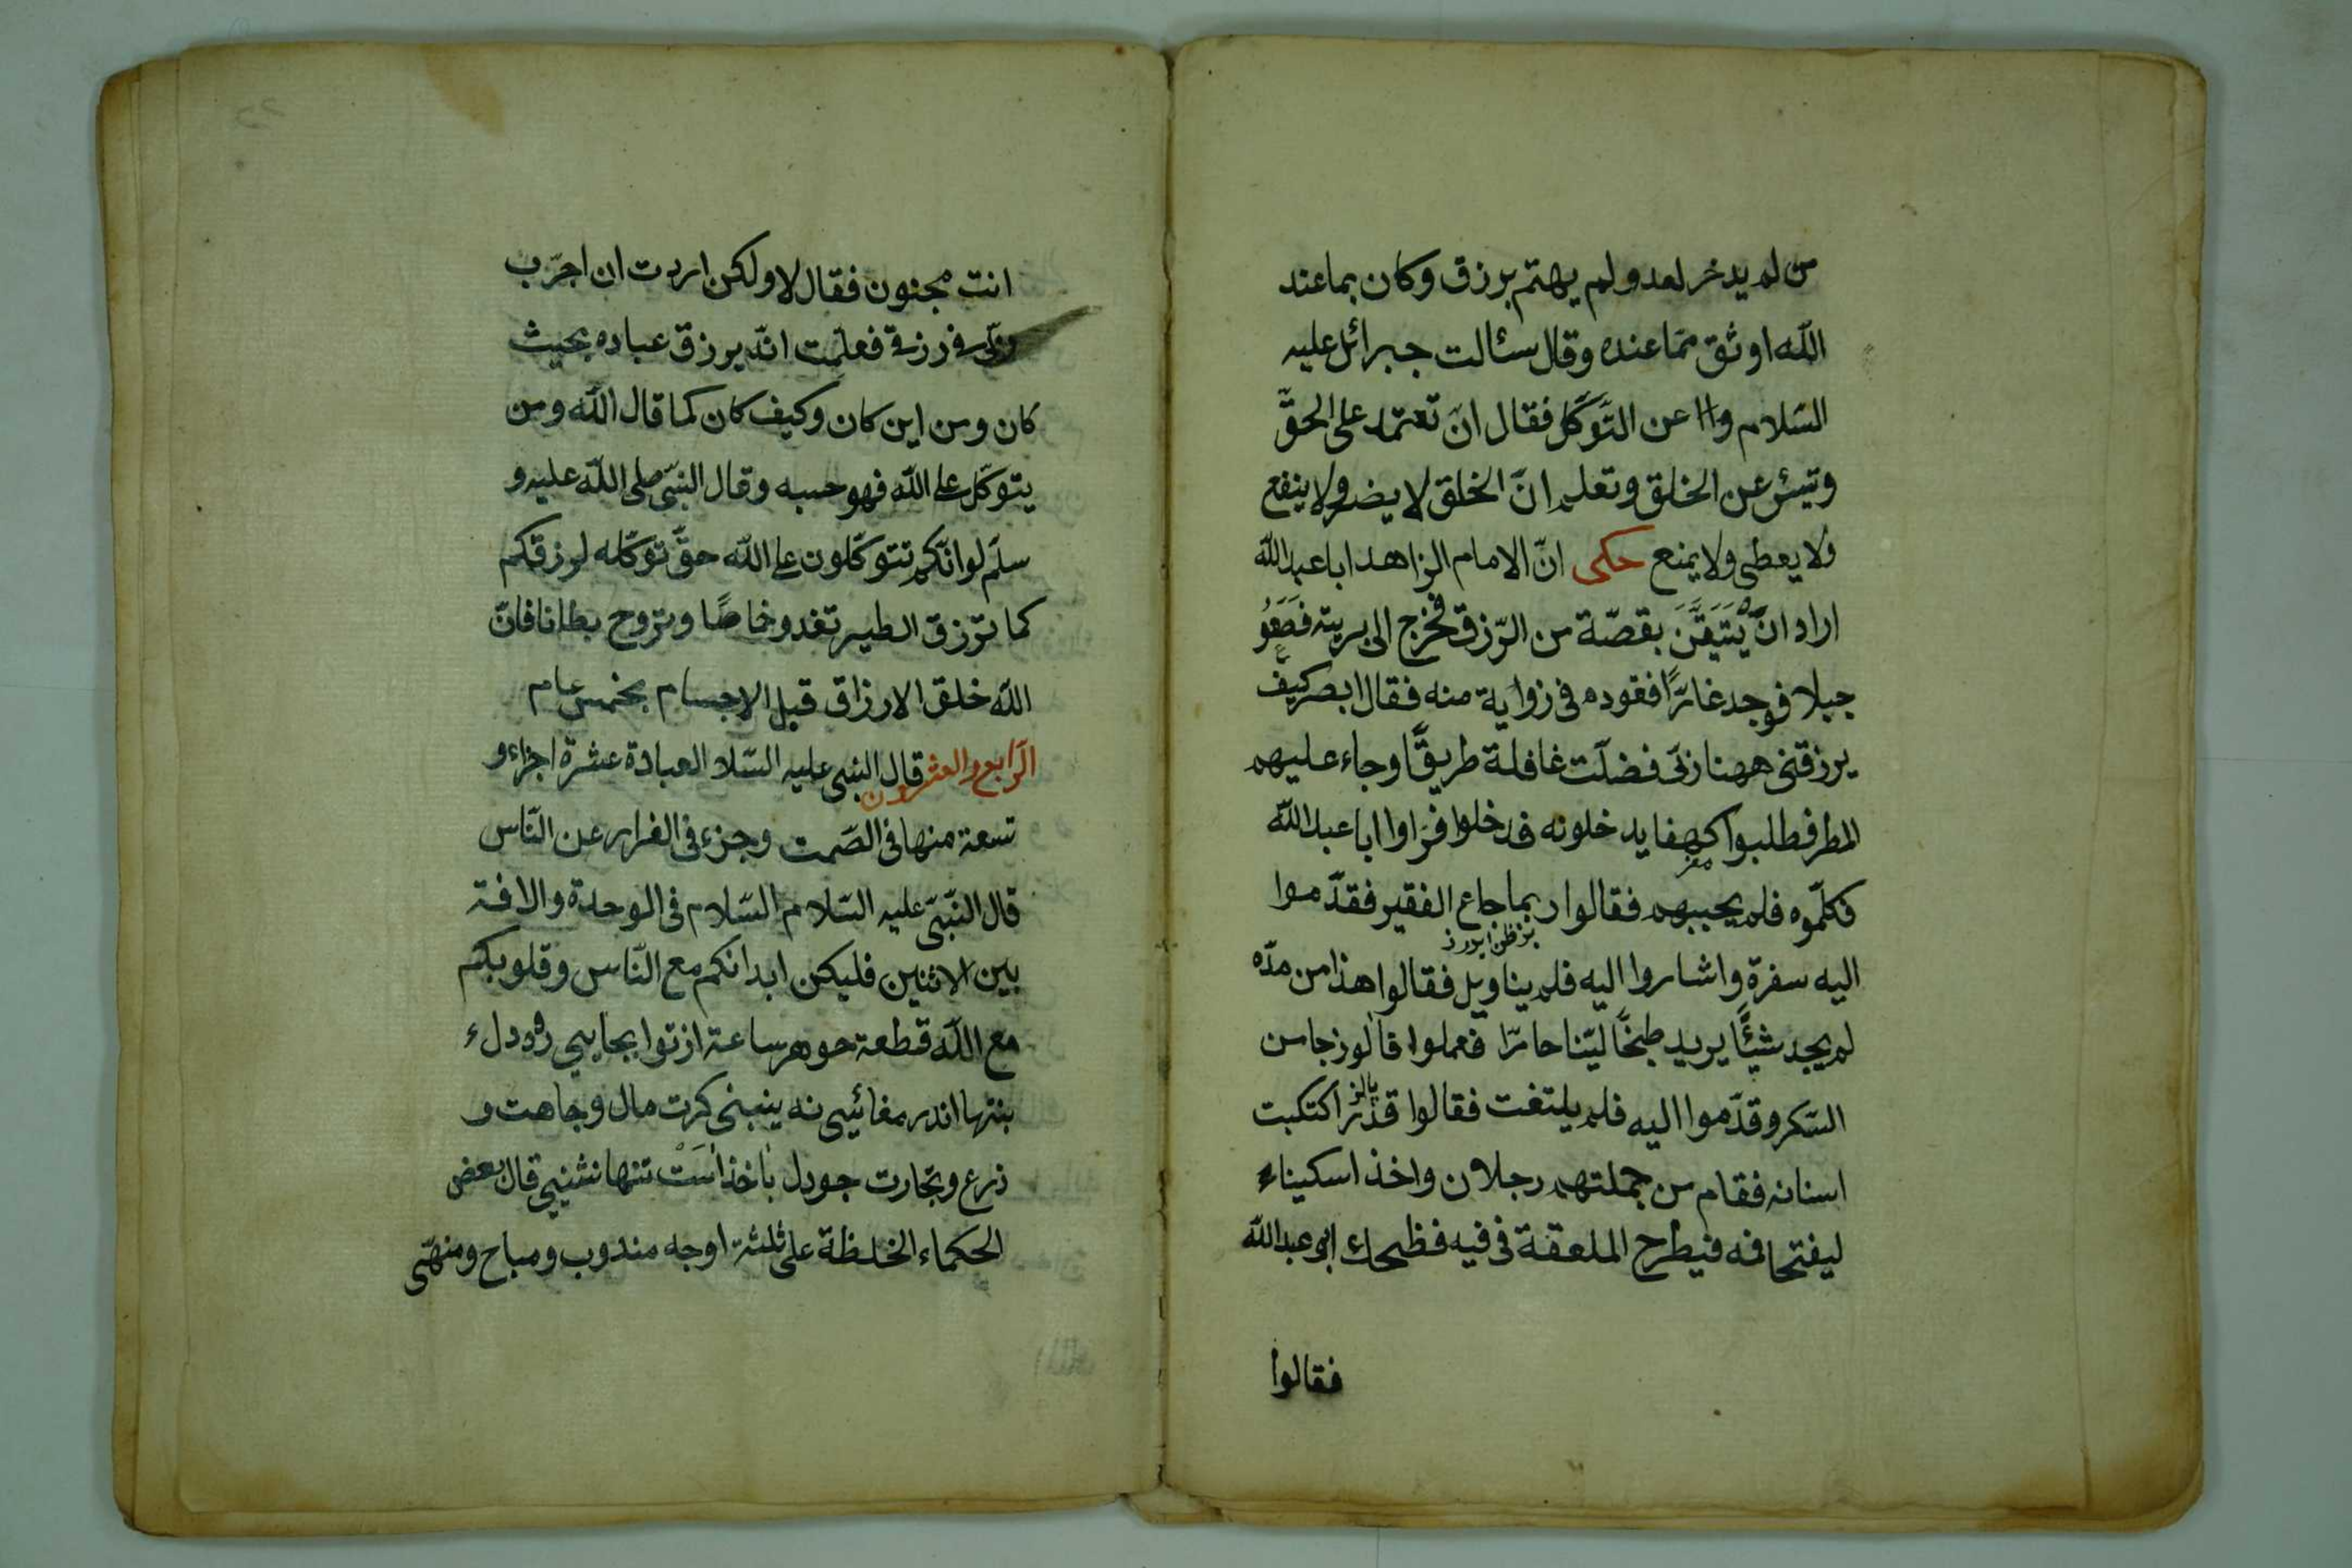 من لم يدخر لغد ولم يهتم برزق وكان بما عند
الله اوثق مما عنده وقال سئالت جبرائل عليه
السلام وا١ عن التوكل فقال ان تعتمد على الحق
وتيئس عن الخلق وتعلم ان الخلق لا يضر ولا ينفع
ولا يعطى ولا يمنع حكى ان الامام الزاهد ابا عبد الله
اراد ان يتيقن بقصة من الرزق فخرج الى برية فصعو
جبلا فوجد غارا فقوده فى زواية منه فقال ابصر كيف
يرزقنى ههنا ربى فضلت غافلة طريقا وجاء عليهم
المطر فطلبوا كهفا يدخلونه فدخلوا فراوا ابا عبد الله
فكلموه فلم يجيبهم فقالوا ربما جاع الفقير فقدموا
اليه سفرة واشاروا اليه فلم يناويل فقالوا هذا من مده
لم يجد شيئا يريد طبخا لينا حارا فعملوا فالوزجا من
السكر وقدموا اليه فلم يلتفت فقالوا قد اكتكبت
اسنانه فقام من جملتهم رجلان واخذ اسكيناء
ليفتحا فه فيطرح الملعقة فى فيه فظحك ابو عبد الله
فقالوا
انت مجنون فقال لا ولكن اردت ان اجرب
ربى فى رزقى فعلمت انه يرزق عباده بحيث
كان ومن اين كان وكيف كان كما قال الله ومن
يتوكل على الله فهو حسبه وقال النبى صلى الله عليه و
سلم لو انكم تتوكلون على الله حق توكله لرزقكم
كما ترزق الطير تغدو خماصا وتروح بطانا فان
الله خلق الارزاق قبل الاجسام بخمس عام
الرابع والعشرون قال النبى عليه السلا العبادة عشرة اجزاء و
تسعة منها فى الصمت وجزء فى الفرار عن الناس
قال النبى عليه السلام السلام فى الوحدة والافة
بين الاثنين فليكن ابدانكم مع الناس وقلوبكم
مع الله قطعة جو هر ساعة از توا بجايى رود دلء
بتنها اندر مغائيى نه ينبنى كرت مال وجاهت و
زرع وتجارت جو دل با خذا است تنها نشنيى قال بعض
الحكماء الخلظة على ثلثة اوجه مندوب ومباح ومنهى